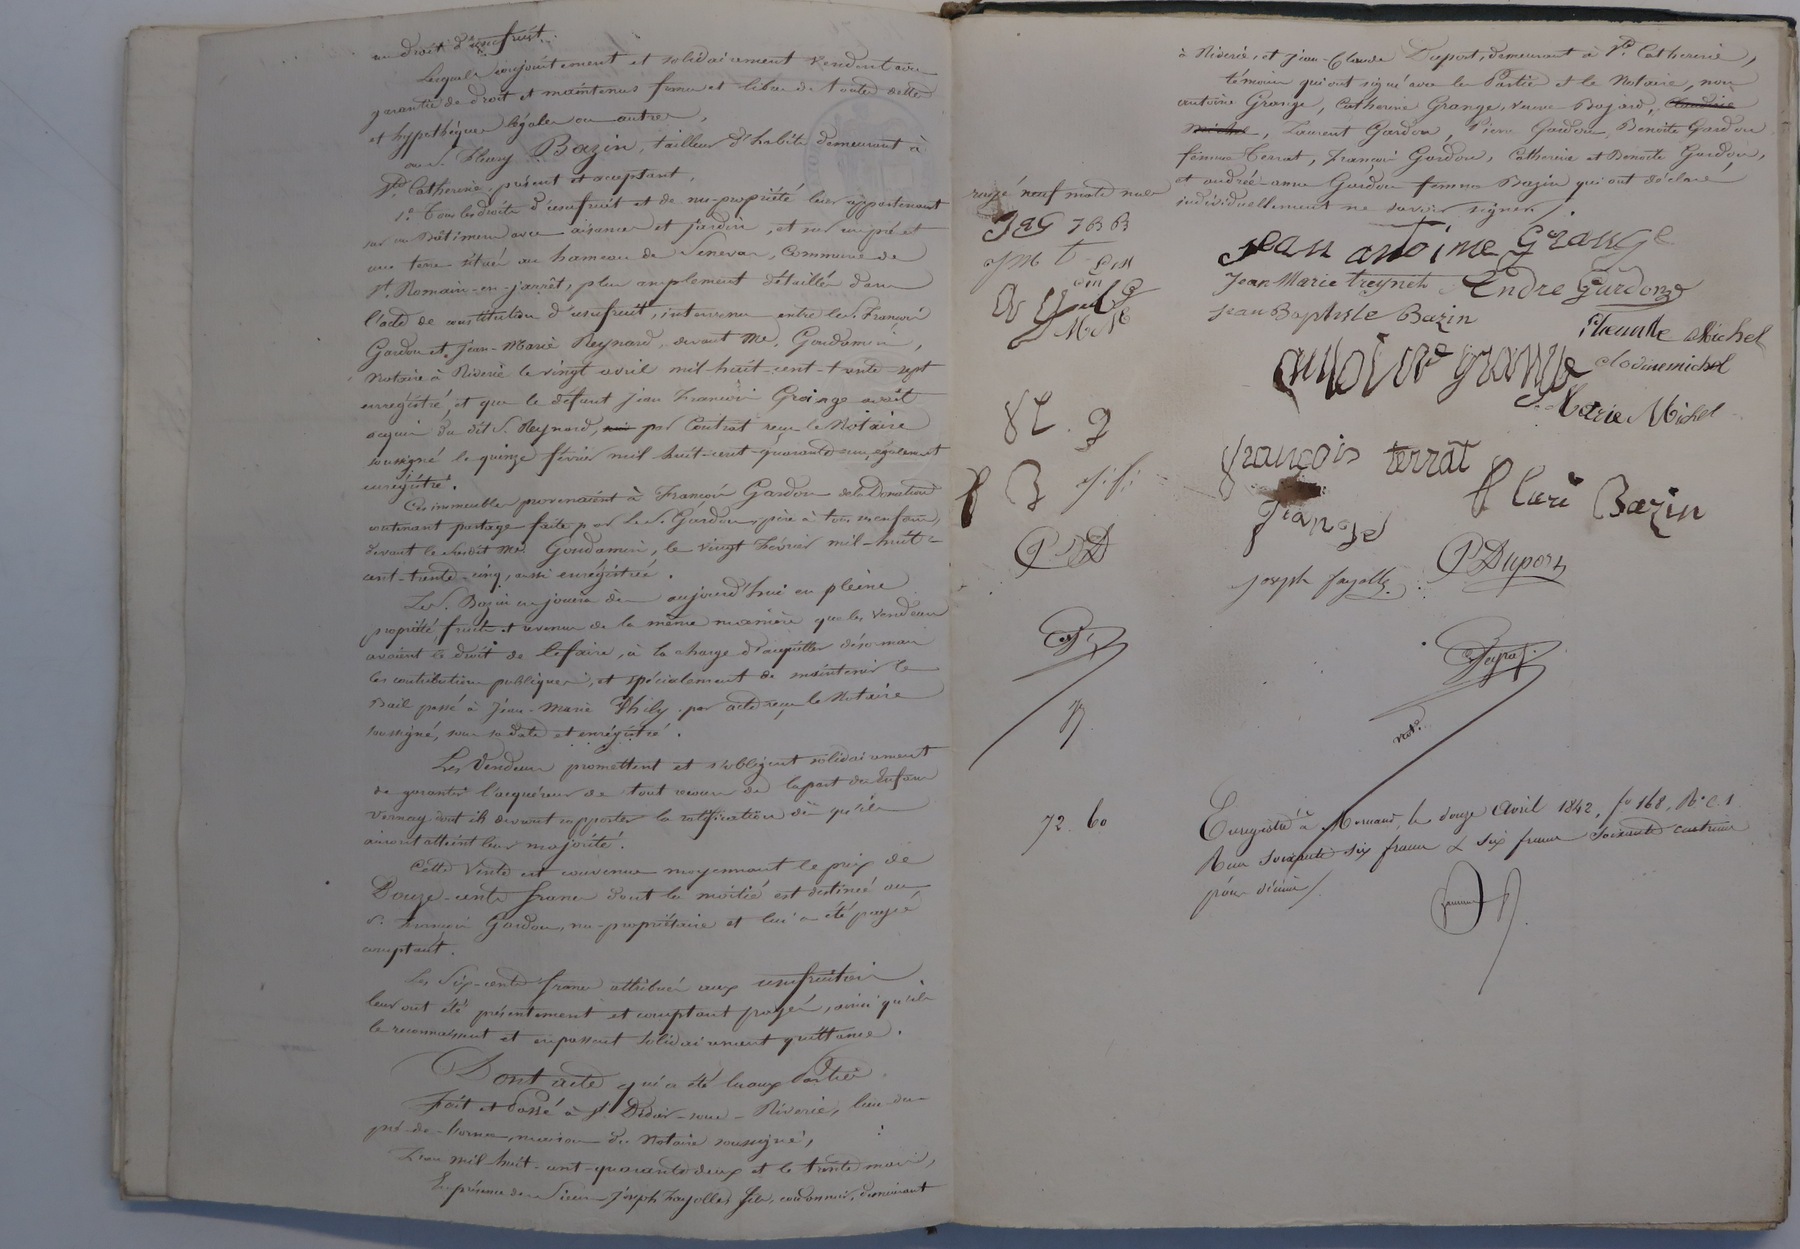 au droit d'usufruit.
Lesquels conjointement et solidairement vendent avec
garantie de droit et maintenus ferme et libre de toutes dettes
et hypothèques légales ou autres,
au S. Fleury Bazin, tailleur d'habits demeurant à
Ste Catherine, présent et acceptant,
1º Tous les droits d'usufruit et de nu-propriété leur appartenant
sur un Bâtiment avec aisances et jardin, et sur un pré et
une terre situés au hameau de Senevas, Commune de
St. Romain-en-jarrêt, plus amplement détaillés dans
l'acte de constitution d'usufruit, intervenu entre les S. François
Gardon et Jean-Marie Reynard, devant Me. Goudamin,
Notaire à Riverie le vingt avril mil-huit-cent-trente-sept
enregistré, et que le défunt Jean François Grange avait
acquis du dit S. Reynard, par Contrat reçu le Notaire
soussigné le quinze février mil huit-cent-quarante-un, également
enregistré.
Ces immeubles provenaient à François Gardon de la Donation
contenant partage faite par le S. Gardon, père à tous ses enfans,
devant le susdit Me. Goudamin, le vingt février mil-huit-
cent-trente-cinq, aussi enregistrée.
Le S. Bazin en jouira dès aujourd'hui en pleine
propriété, fruits et revenus de la même manière que les vendeurs
avaient le droit de le faire, à la charge d'acquitter désormais
les contributions publiques, et spécialement de maintenir le
Bail passé à Jean-Marie Thily par acte reçu le Notaire
soussigné, sous sa date et enregistré.
Les Vendeurs promettent et s'obligent solidairement
de garantir l'acquéreur de tout recours de la part des enfans
Vernay dont ils devront rapporter la ratification dès qu'ils
auront atteint leur majorité.
Cette Vente est convenue moyennant le prix de
Douze-cents francs dont la moitié est destinée au
S. François Gardon, nu-propriétaire et lui a été payée
comptant.
Les Six-cents francs attribués aux usufruitiers
leur ont été présentement et comptant payés, ainsi qu'ils
le reconnaissent et en passent solidairement quittance.
Dont acte qui a été lu aux Parties
Fait et Passé à St. Didier-sous-Riverie, lieu du
pré-de-, maison du Notaire soussigné,
L'an mil-huit-cent-quarante deux et le trente mars,
En présence des Sieurs Joseph Fayolles fils, cordonnier, demeurant
à Riverie, et Jean-Claude Duport, demeurant à Ste. Catherine,
témoins qui ont signé avec les Parties et le Notaire, non
antoine Grange, Catherine Grange, veuve Bazard, Claudine
Michel, Laurent Gardon, Pierre Gardon, Benoîte Gardon
femme Terrat, François Gardon, Catherine et Benoîte Gardon,
et andrée-anne Gardon femme Bazin qui ont déclaré
individuellement ne savoir signer.
rayé neuf mots nuls
JAG JBB
JM t
Jean antoine Grange
Jean Marie treynet Endre Gardon
Jean Baptiste Bazin
Michel
antoine grange
clodine michel
Marie Michel
françois terrat
fleuri Bazin
f B J.f.
grange
P D
joseph fayolle P Duport
not.
72. 60
Enregistré à Mornant, le douze Avril 1842, fo 168, Ro. C. 1.
Reçu soixante six francs & six francs soixante centimes
pour dixième